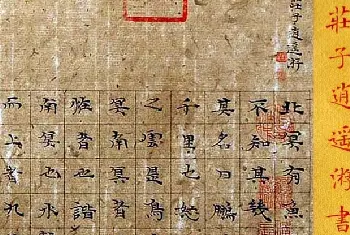 莊子逍遥游書
北冥有魚
不知其幾
其名曰鵬
千里也怒
之雲是鳥
冥南冥者
怪者也諧
南冥也水
而上者九
莊子逍遥游